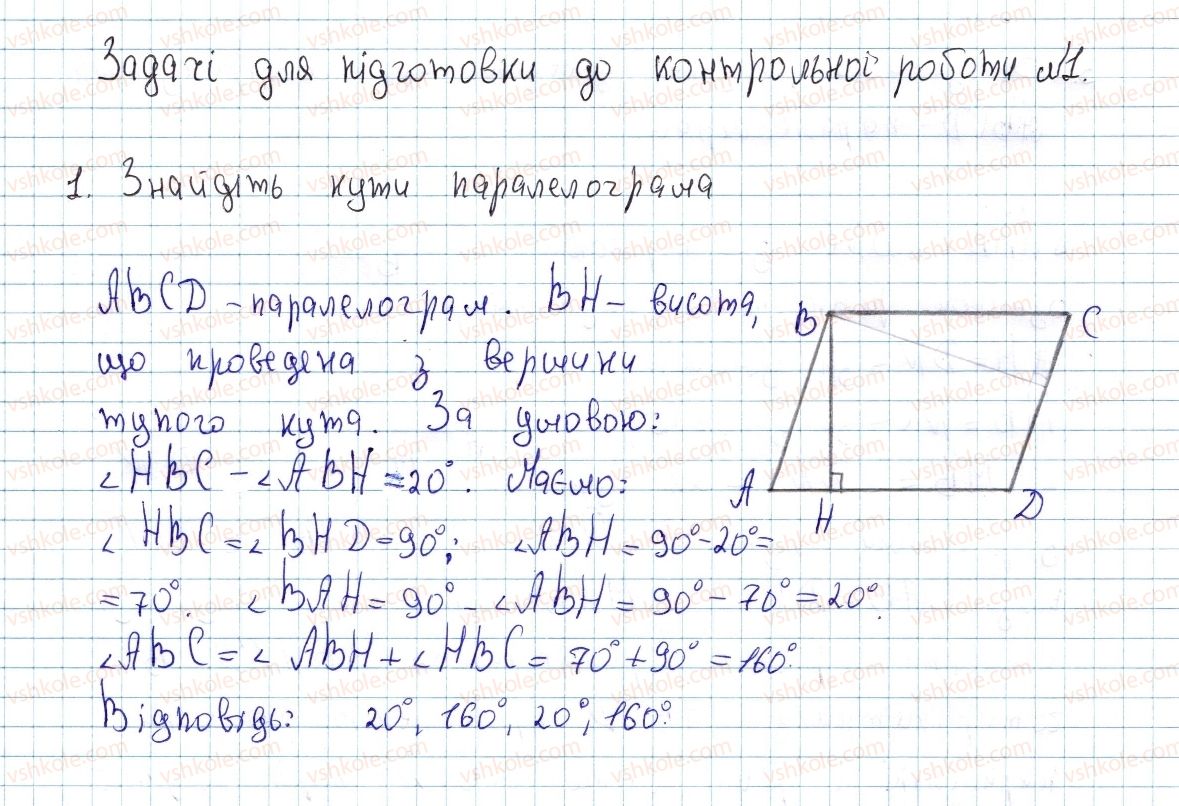 Задачі для підготовки до контрольної роботи №1.
1. Знайдіть кути паралелограма
ABCD - паралелограм. BH - висота,
що проведена з вершини
тупого кута. За умовою:
∠HBC - ∠ABH = 20°. Маємо:
∠HBC = ∠BHD = 90°; ∠ABH = 90° - 20° =
= 70°. ∠BAH = 90° - ∠ABH = 90° - 70° = 20°.
∠ABC = ∠ABH + ∠HBC = 70° + 90° = 160°.
Відповідь: 20°, 160°, 20°, 160°.
B
C
A
H
D
vshkole.com